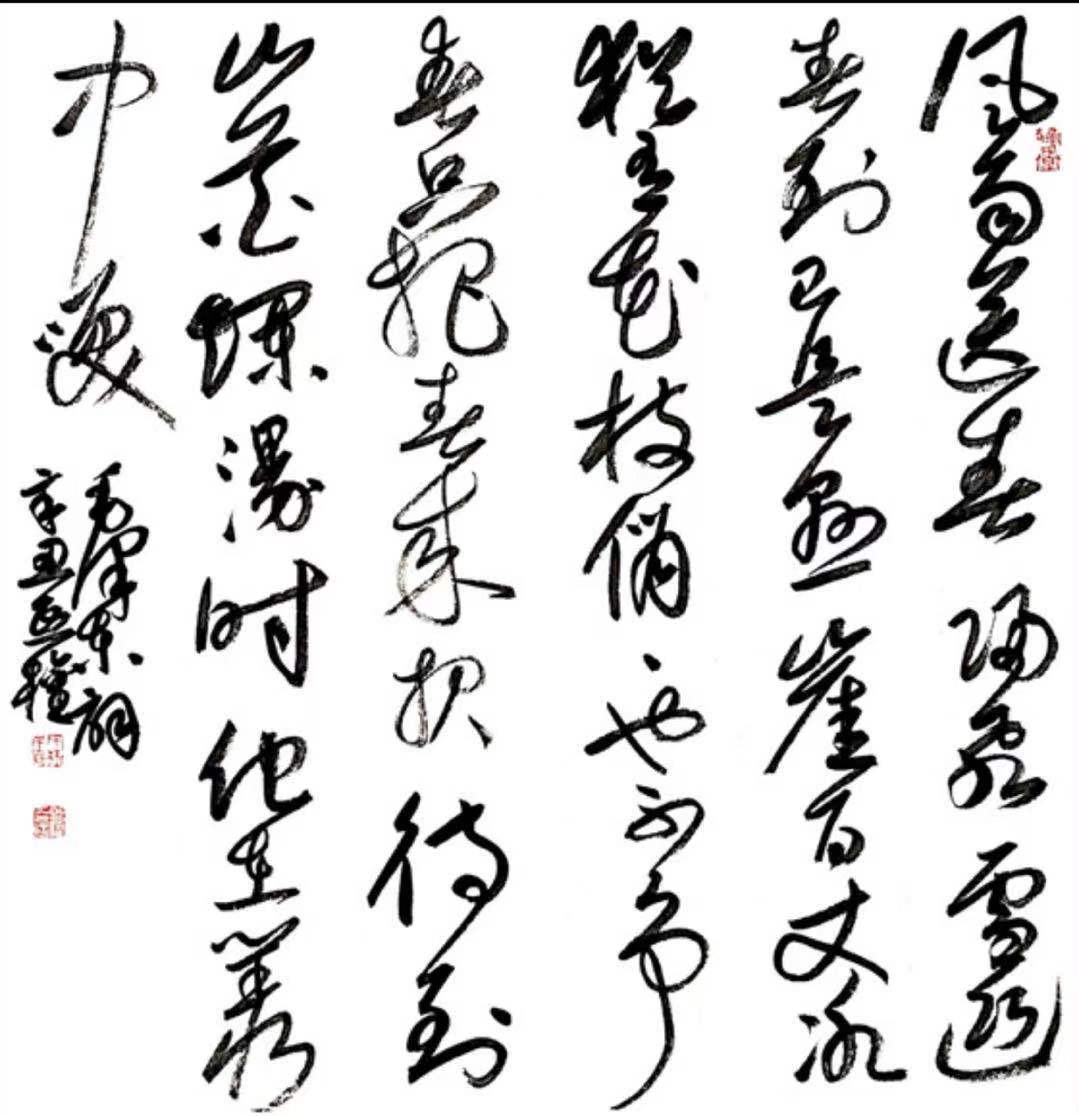 风雨送春归飞雪迎
春到已是悬崖百丈冰
犹有花枝俏、也不争
春只把春来报待到
山花烂漫时他在丛
中笑
毛泽东词
辛丑